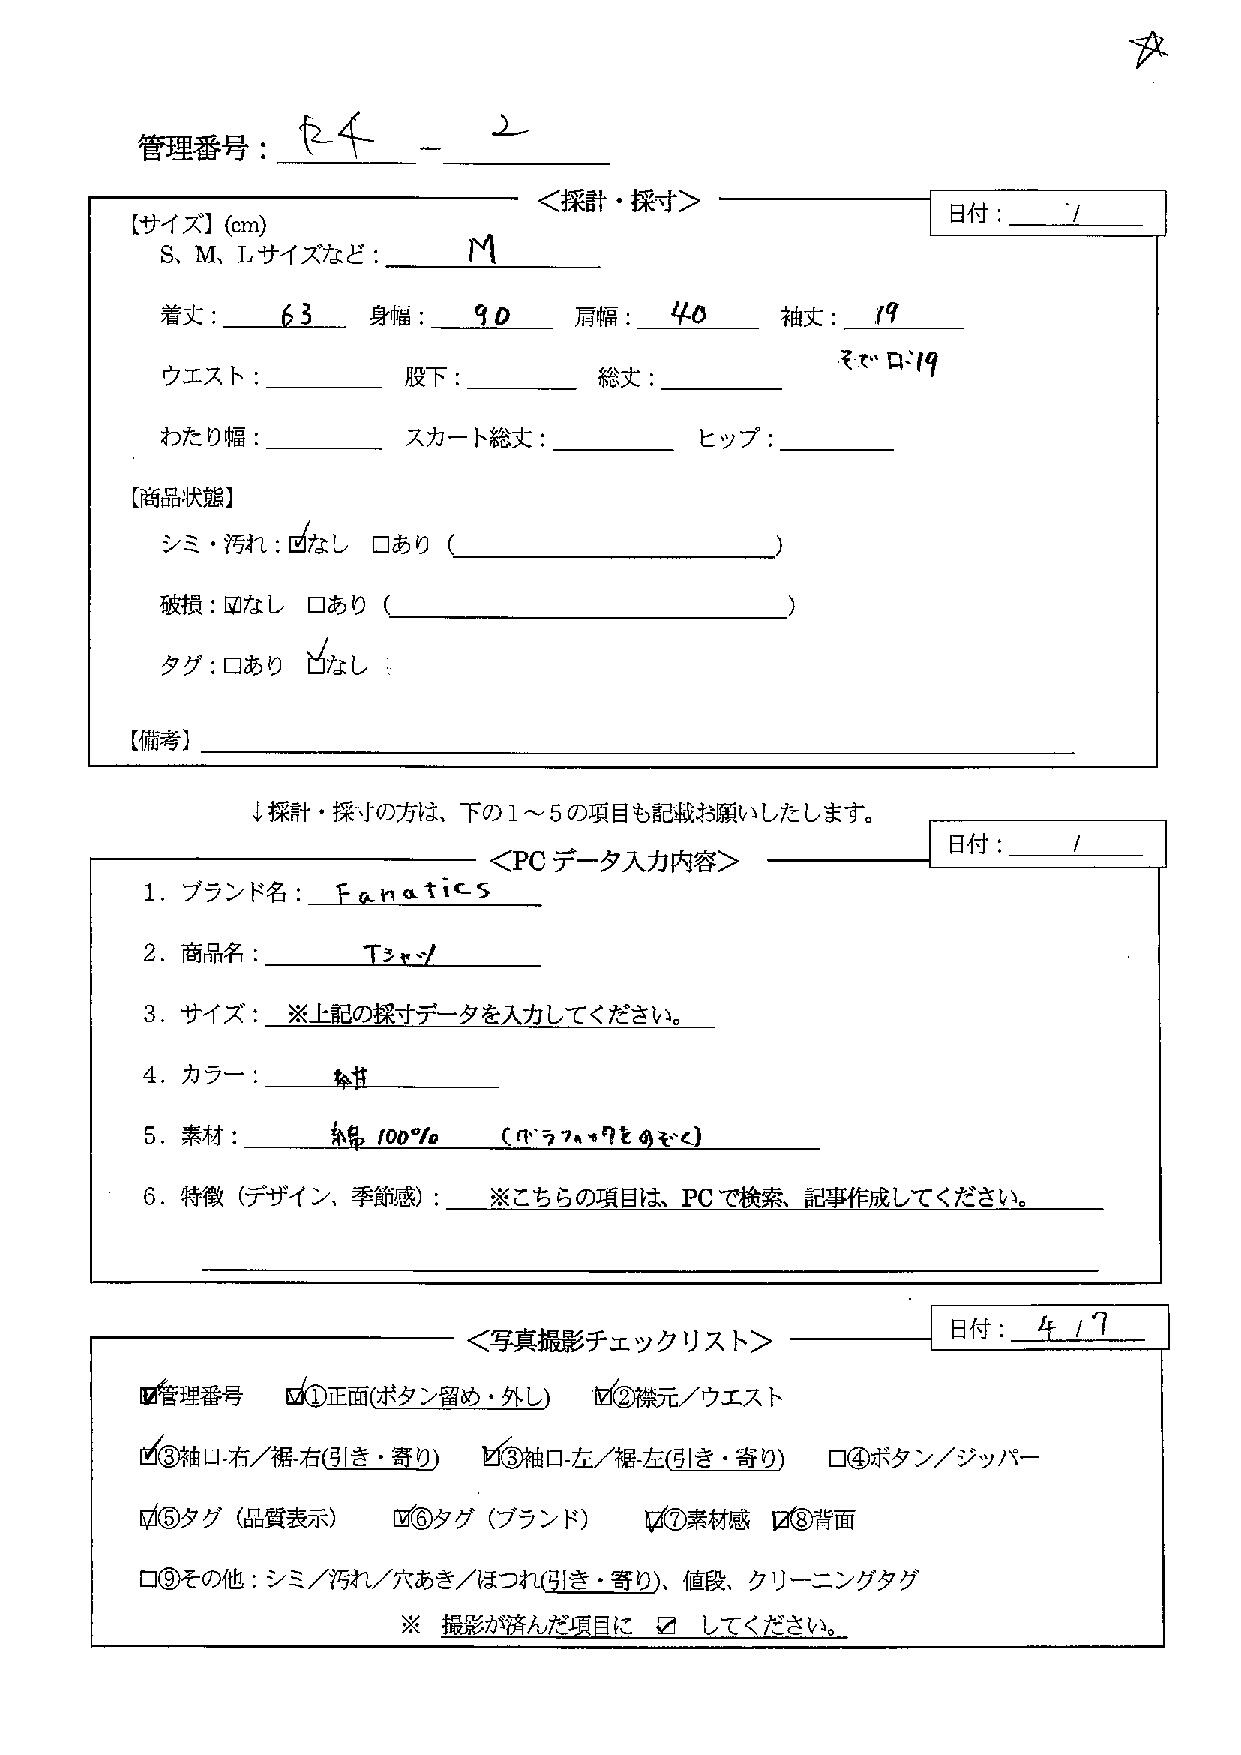 管理番号： R4 － 2
＜採計・採寸＞
日付： /
【サイズ】(cm)
S、M、Lサイズなど： M
着丈： 63 身幅： 90 肩幅： 40 袖丈： 19
そで口：19
ウエスト： 股下： 総丈：
わたり幅： スカート総丈： ヒップ：
【商品状態】
シミ・汚れ：☑なし □あり（ ）
破損：☑なし □あり（ ）
タグ：□あり ☑なし
【備考】
↓採計・採寸の方は、下の１～５の項目も記載お願いしたします。
日付： /
＜PCデータ入力内容＞
1．ブランド名： Fanatics
2．商品名： Tシャツ
3．サイズ： ※上記の採寸データを入力してください。
4．カラー： 紺
5．素材： 綿 100% (グラフィックをのぞく)
6．特徴（デザイン、季節感）： ※こちらの項目は、PCで検索、記事作成してください。
日付： 4 / 7
＜写真撮影チェックリスト＞
☑管理番号 ☑①正面(ボタン留め・外し) ☑②襟元／ウエスト
☑③袖口-右／裾-右(引き・寄り) ☑③袖口-左／裾-左(引き・寄り) □④ボタン／ジッパー
☑⑤タグ（品質表示） ☑⑥タグ（ブランド） ☑⑦素材感 ☑⑧背面
□⑨その他：シミ／汚れ／穴あき／ほつれ(引き・寄り)、値段、クリーニングタグ
※ 撮影が済んだ項目に ☑ してください。